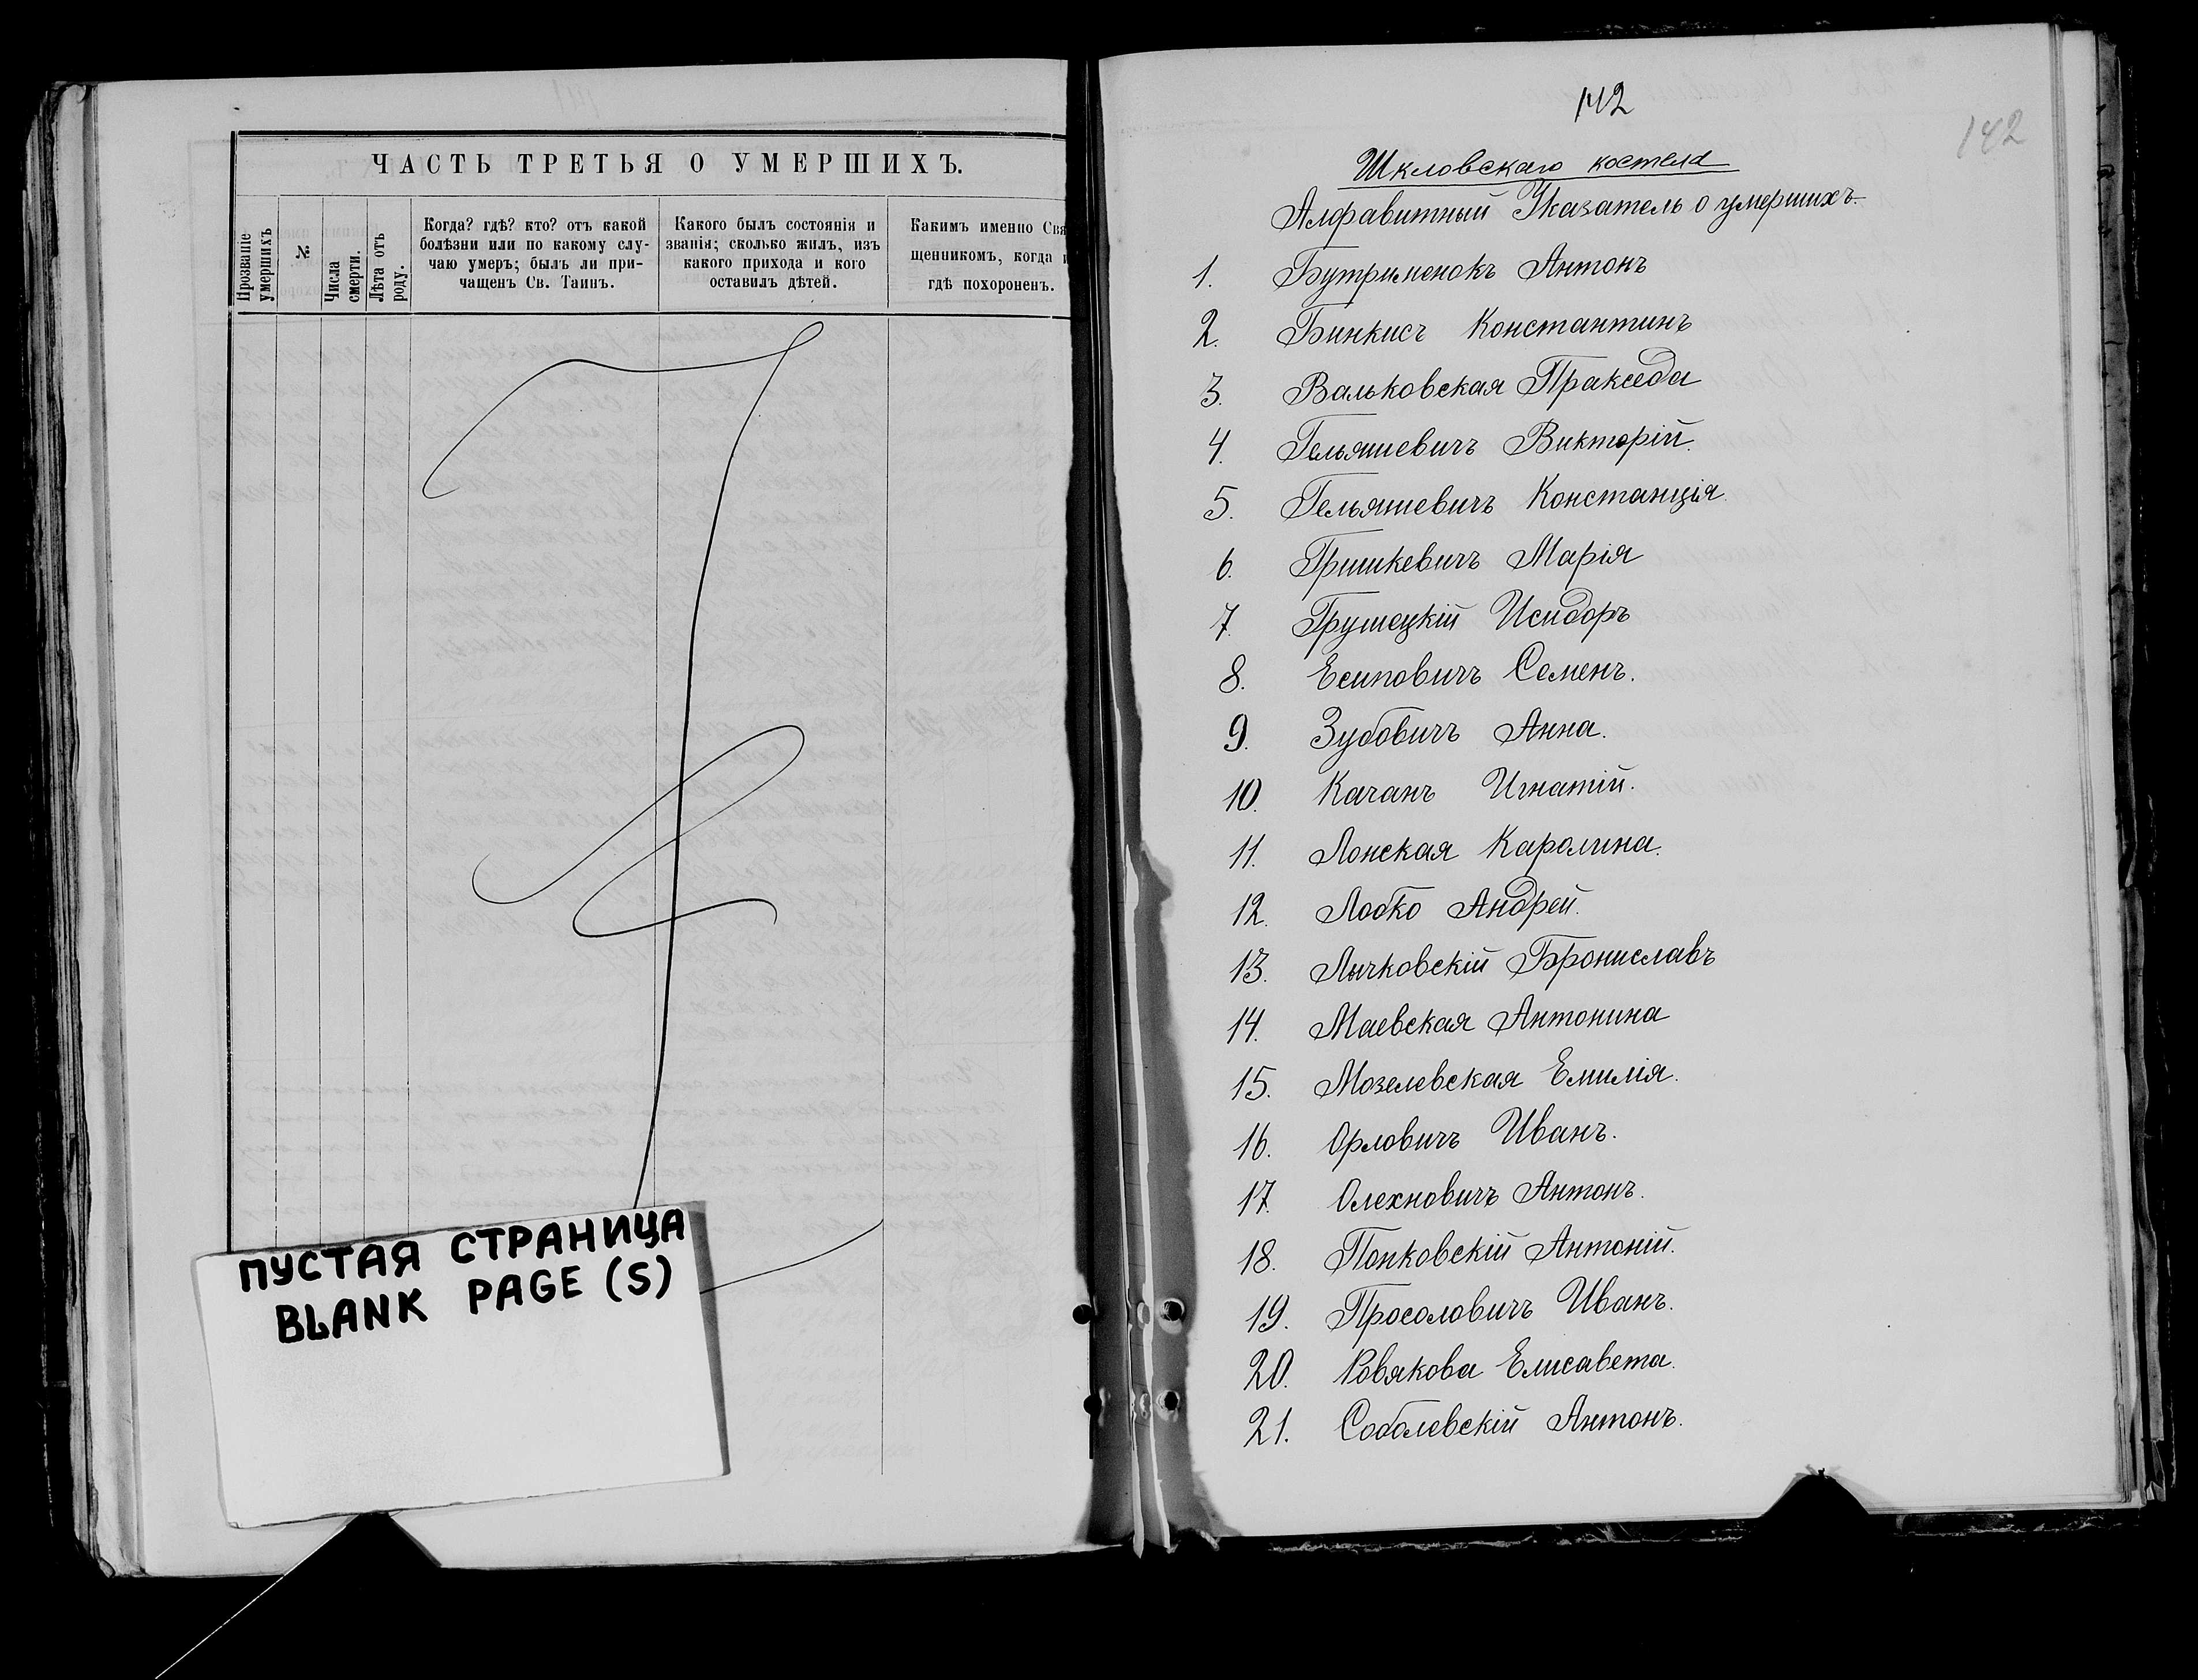 ЧАСТЬ ТРЕТЬЯ О УМЕРШИХЪ.
Прозваніе
умершихъ
№
Числа
смерти.
Лѣта отъ
роду.
Когда? гдѣ? кто? отъ какой
болѣзни или по какому слу-
чаю умеръ; былъ ли при-
чащенъ Св. Таинъ.
Какого былъ состоянія и
званія; сколько жилъ, изъ
какого прихода и кого
оставилъ дѣтей.
Каким именно Свя
щенникомъ, когда
гдѣ похороненъ.
ПУСТАЯ СТРАНИЦА
BLANK PAGE (S)
142
142
Шкловскаго костела
Алфавитный Указатель о умершихъ.
1. Бутрименокъ Антонъ
2. Бинкисъ Константинъ
3. Вальковская Пракседа
4. Гельяшевичъ Викторій.
5. Гельяшевичъ Констанція
6. Гришкевичъ Марія
7. Грушецкій Исидоръ
8. Есиповичъ Семенъ.
9. Зубовичъ Анна.
10. Качанъ Игнатій.
11. Лонская Каролина.
12. Лобко Андрей.
13. Лычковскій Брониславъ
14. Маевская Антонина
15. Мозелевская Емилія.
16. Орловичъ Иванъ.
17. Олехновичъ Антонъ.
18. Попковскій Антоній.
19. Просоловичъ Иванъ.
20. Ровякова Елисавета.
21. Соболевскій Антонъ.